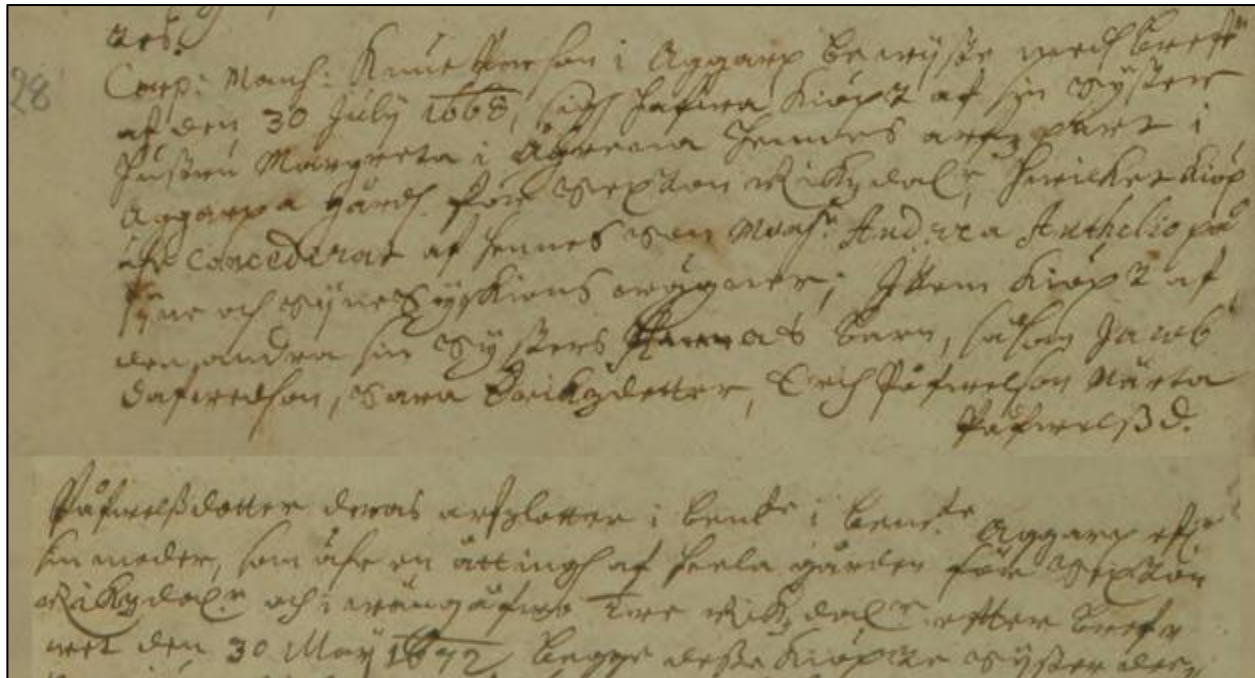 28
Corp: Mons: Knut Person i Aggarp bewijste med breff
af den 30 July 1668, sigh hafwa kiöpt af sin Syster
hustru Margreta i Ågrena hennes arfz part i
Aggarpa gårdh för Sexton Rikzdalr, hwilket kiöp
ähr concederat af hennes Son Monsr. Andrea Anthelio på
syne och syne Syskions wägner; Item kiöpt af
den andra sin Systers barn, såsom Jacob
Dafwedson, Sara Erikzdotter, Erich Påfwelson Märta
Påfwelßd.
Påfwelßdotter deras arfzlotter i Aggarp
sin moder, som ähr en åtting af heela gården för Sexton
Rikzdalr och i wängåfwo Tre Rikzdalr efter brefz
den 30 May 1672, begge desse kiöpte